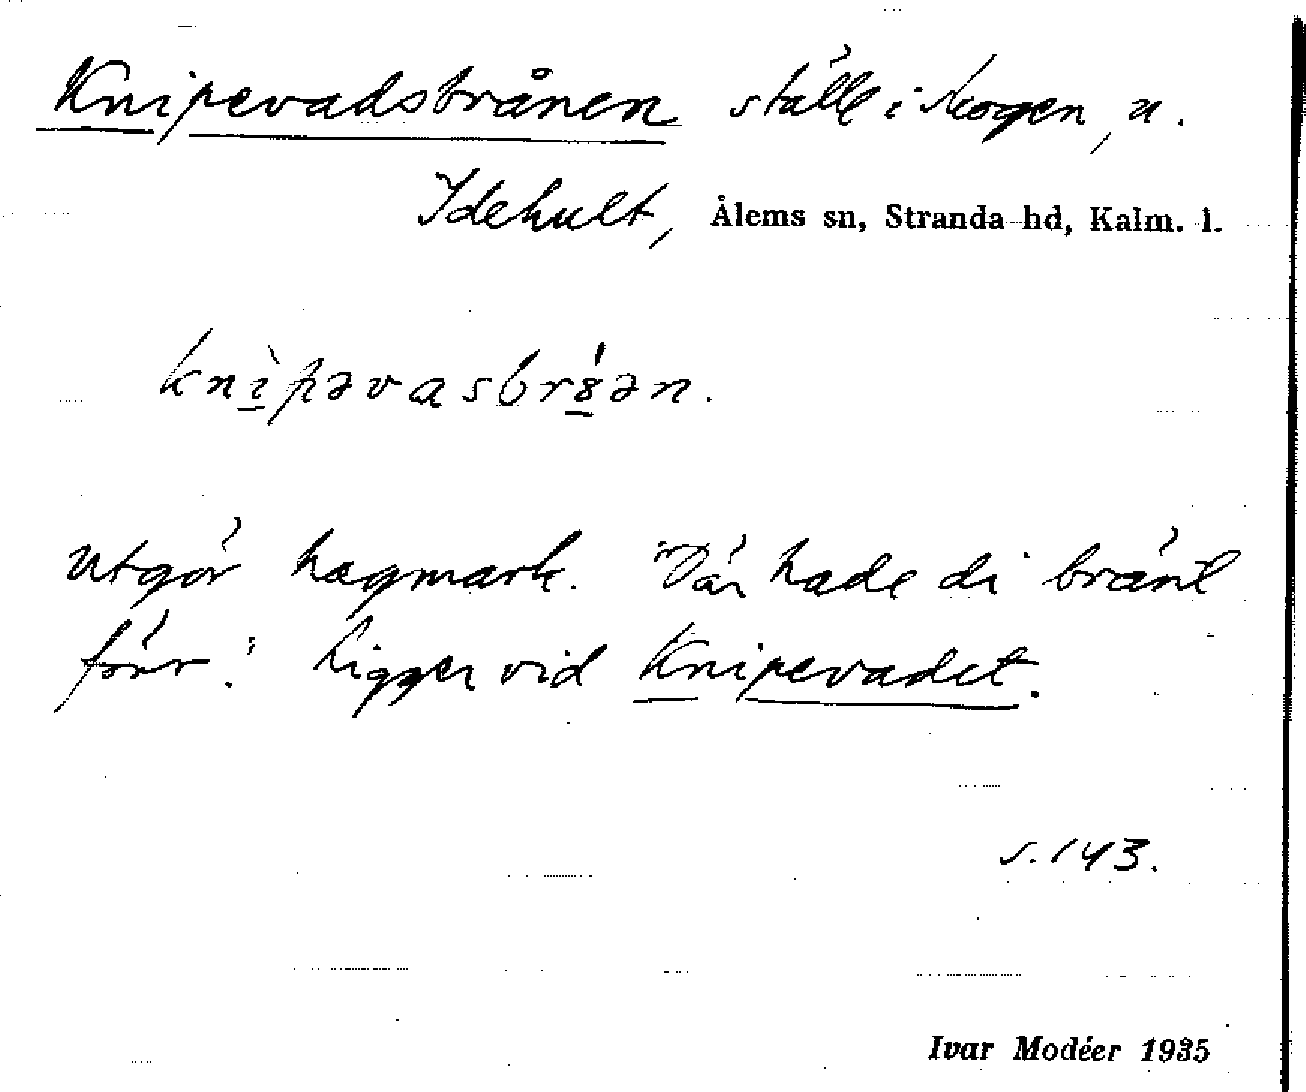 Knipevadsbrånen ställe i skogen, u.
Idehult, Ålems sn, Stranda hd, Kalm. l.
knìpəvasbrə́n.
utgör hagmark. "Där hade di bränt
förr". Ligger vid Knipevadet.
s. 143.
Ivar Modéer 1935